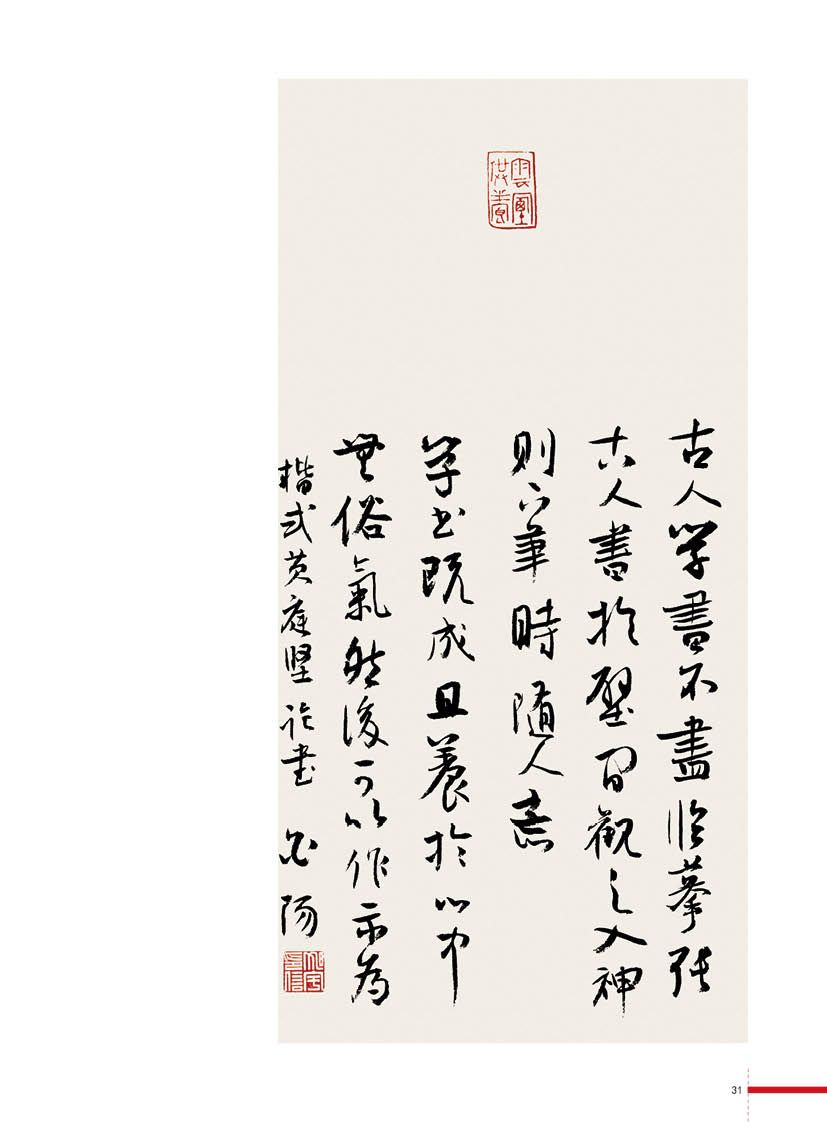 雲供養
古人學書不盡臨摹張
古人書於壁間觀之入神
則下筆時隨人意
學書既成且養於心中
無俗氣然後可以作示為
楷式黃庭堅論書 陽
31